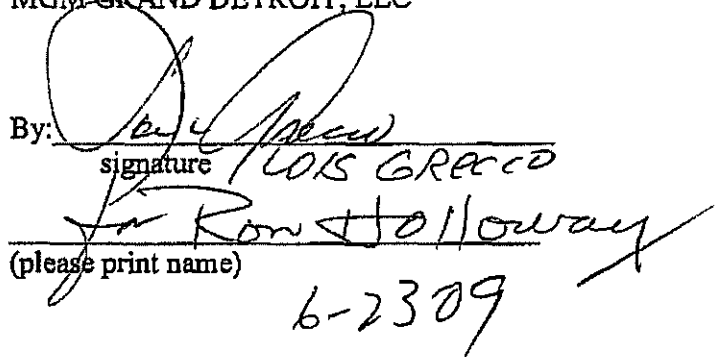 MGM GRAND DETROIT, LLC
By: Lois Grecco
signature LOIS GRECCO
for Ron Holloway
(please print name)
6-2309